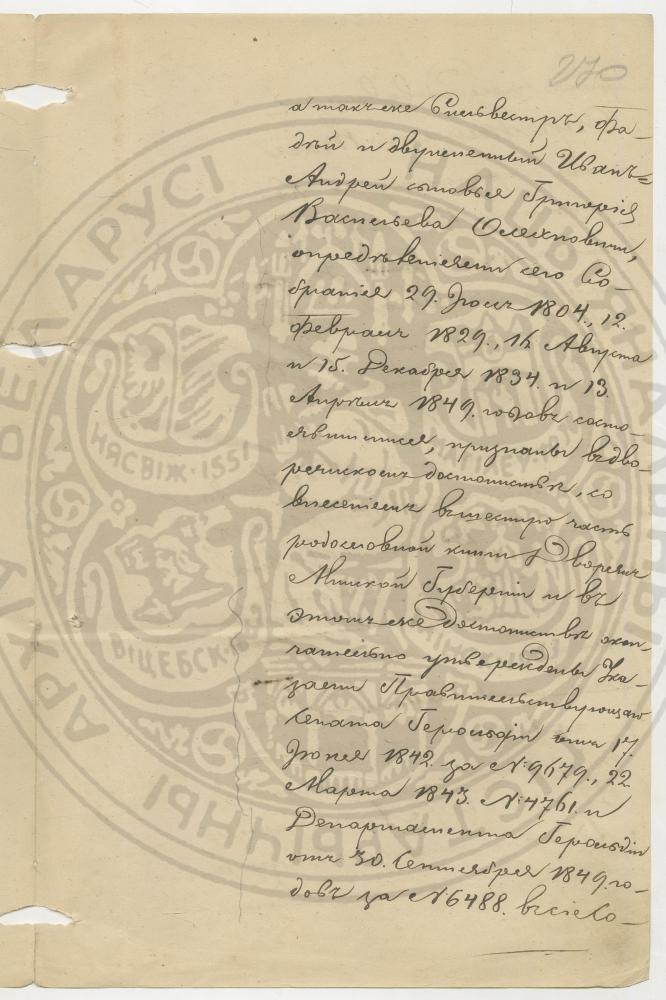 270
а также Сильвестръ, Фа-
дѣй и двуименный Иванъ=
Андрей сыновья Григорія
Васильева Олехновичи,
опредѣленіями сего Со-
бранія 29. Іюля 1804., 12.
Февраля 1829., 16 Августа
и 15. Декабря 1834. и 13.
Апрѣля 1849. годовъ состо-
явшимися, признаны въ дво-
рянскомъ достоинствѣ, со
внесеніемъ въ шестую часть
родословной книги Дворянъ
Минской Губерніи и въ
этомъ же Достоинствѣ окон-
чательно утверждены Ука-
зами Правительствующаго
Сената Герольдіи отъ 17.
Іюня 1842. за №: 9679., 22.
Марта 1843. №: 4761. и
Департамента Герольдіи
отъ 30. Сентября 1849 го-
довъ за № 6488. въ сіе Со-
АРХІВЫ БЕЛАРУСІ
НЯСВІЖ · 1551
ВІЦЕБСК